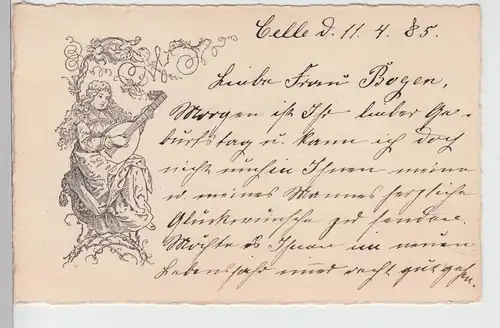 Celle d. 11. 4. 85.
Liebe Frau Bogen,
Morgen ist Ihr lieber Ge-
burtstag u. kann ich doch
nicht umhin Ihnen meine
u. meines Mannes herzliche
Glückwünsche zu senden.
Möchte es Ihnen im neuen
Lebensjahr immer recht gut gehen.